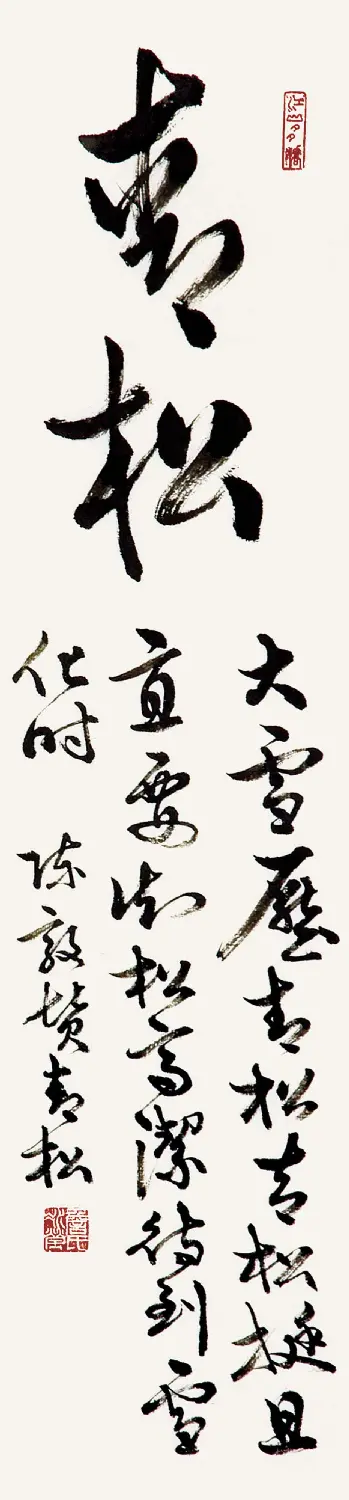 江山多嬌
青松
大雪壓青松青松挺且
直要知松高潔待到雪
化时 陈毅赞青松